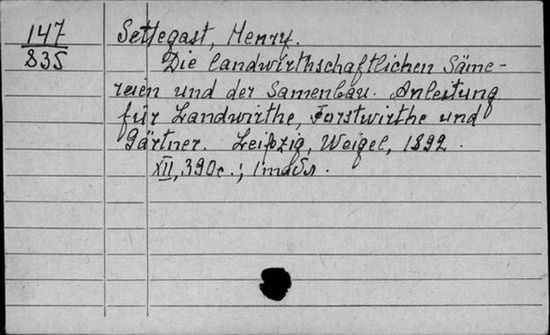 147
835
Settegast, Henry.
Die landwirthschaftlichen Säme-
reien und der Samenbau. Anleitung
für Landwirthe, Forstwirthe und
Gärtner. Leipzig, Weigel, 1892.
XII, 390c.;